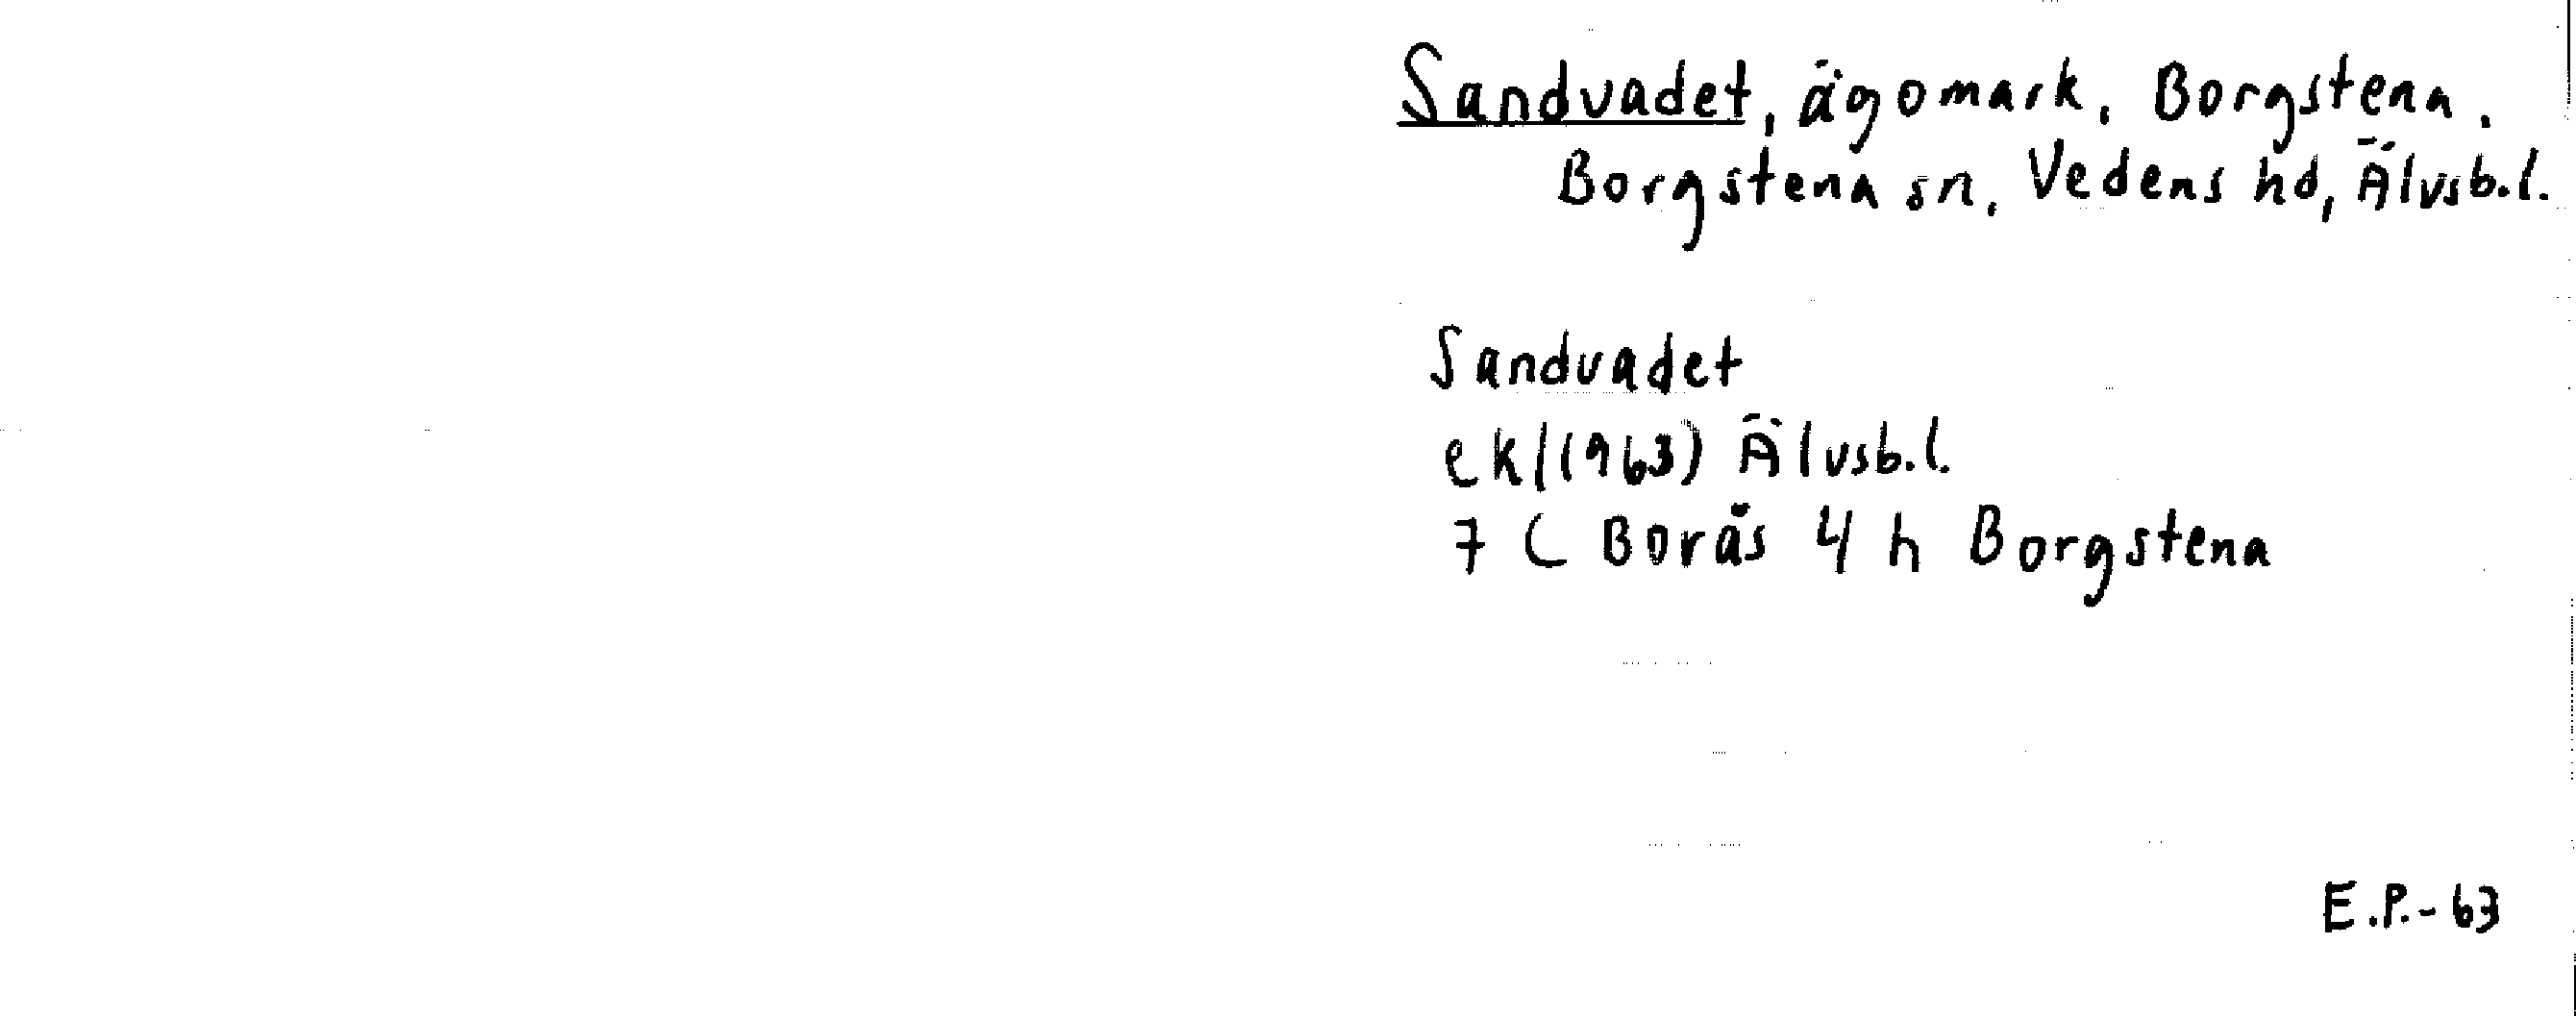 Sandvadet, ägomark, Borgstena,
Borgstena sn, Vedens hd, Älvsb.l.
Sandvadet
ek/(1963) Älvsb.l.
7 C Borås 4 h Borgstena
E.P.-63